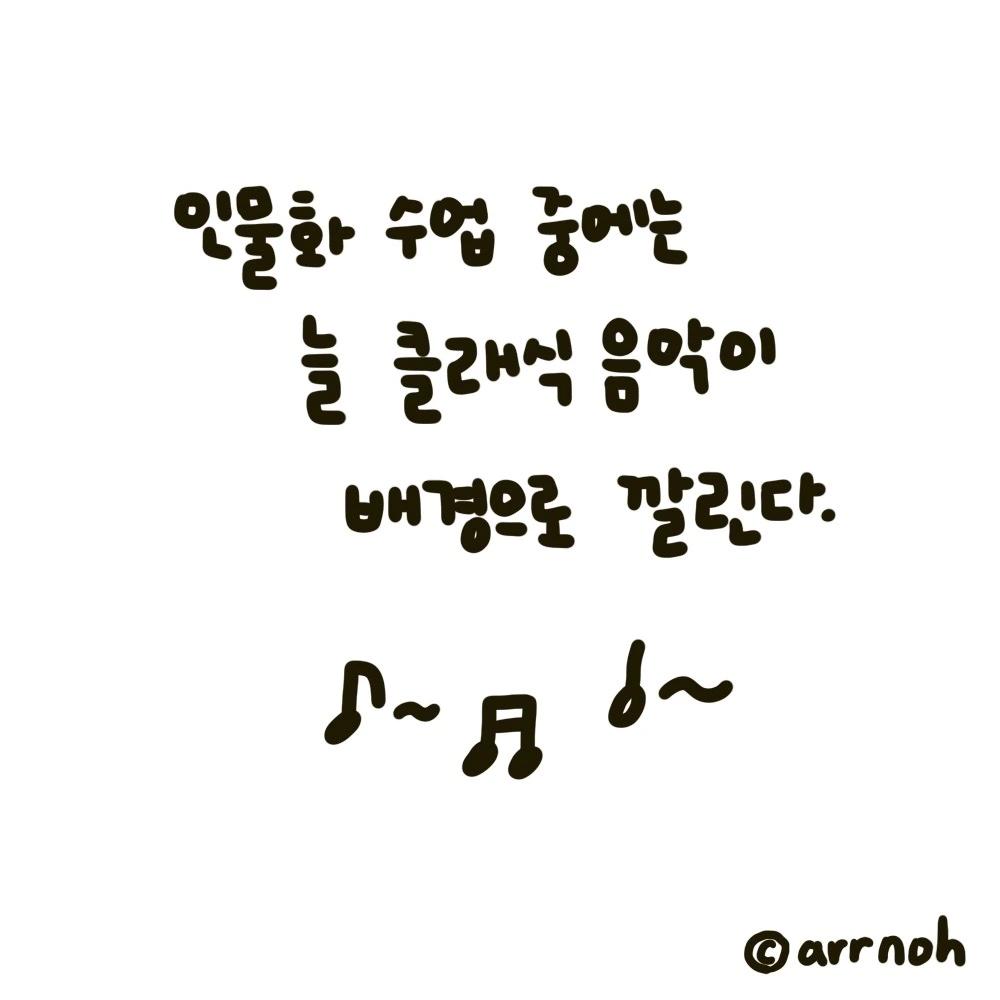 인물화 수업 중에는
늘 클래식 음악이
배경으로 깔린다.
©arrnoh